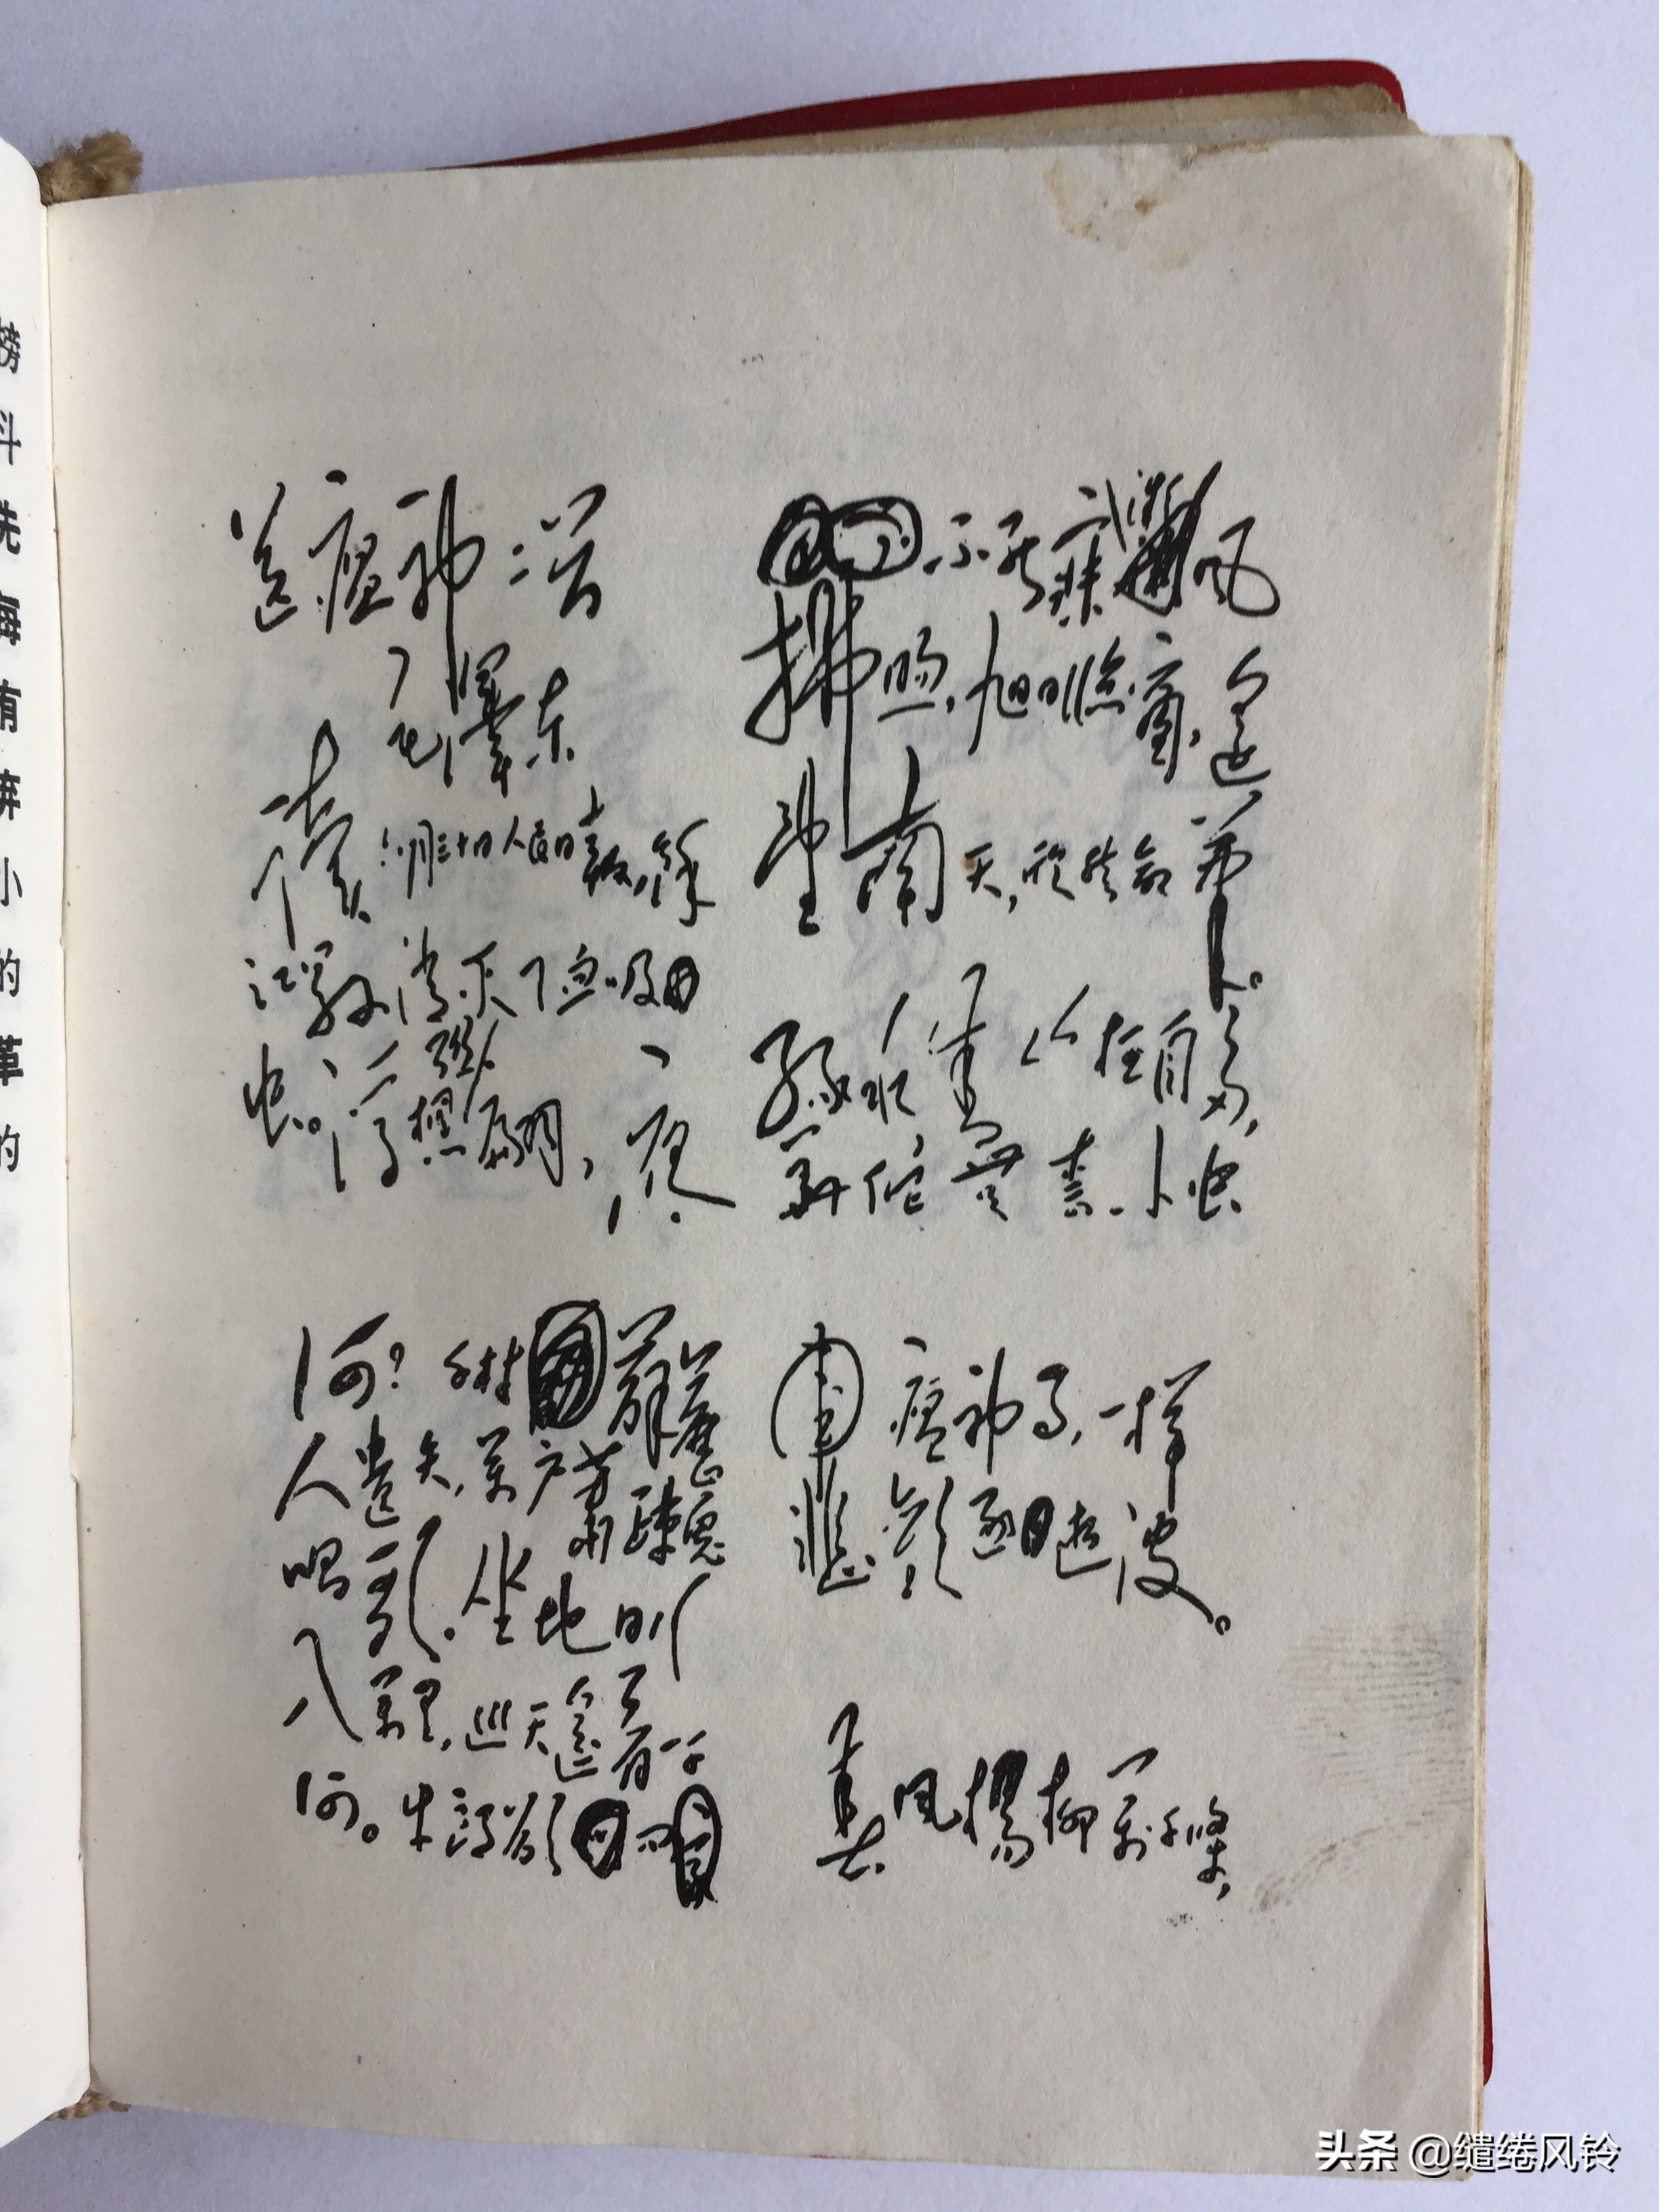 送瘟神二首
毛澤东
读六月三十日人民日报，余
江縣消灭了血吸
虫。浮想联翩，夜
不能寐。微风
拂煦，旭日临窗，遥
望南天，欣然命筆。
绿水青山枉自多，
華佗無奈小虫
何？千村薜荔
人遺矢，萬户萧疏鬼
唱歌。坐地日行
八萬里，巡天遥看一千
河。牛郎欲问
瘟神事，一样
悲歡逐逝波。
春风楊柳萬千條，
头条 @缱绻风铃